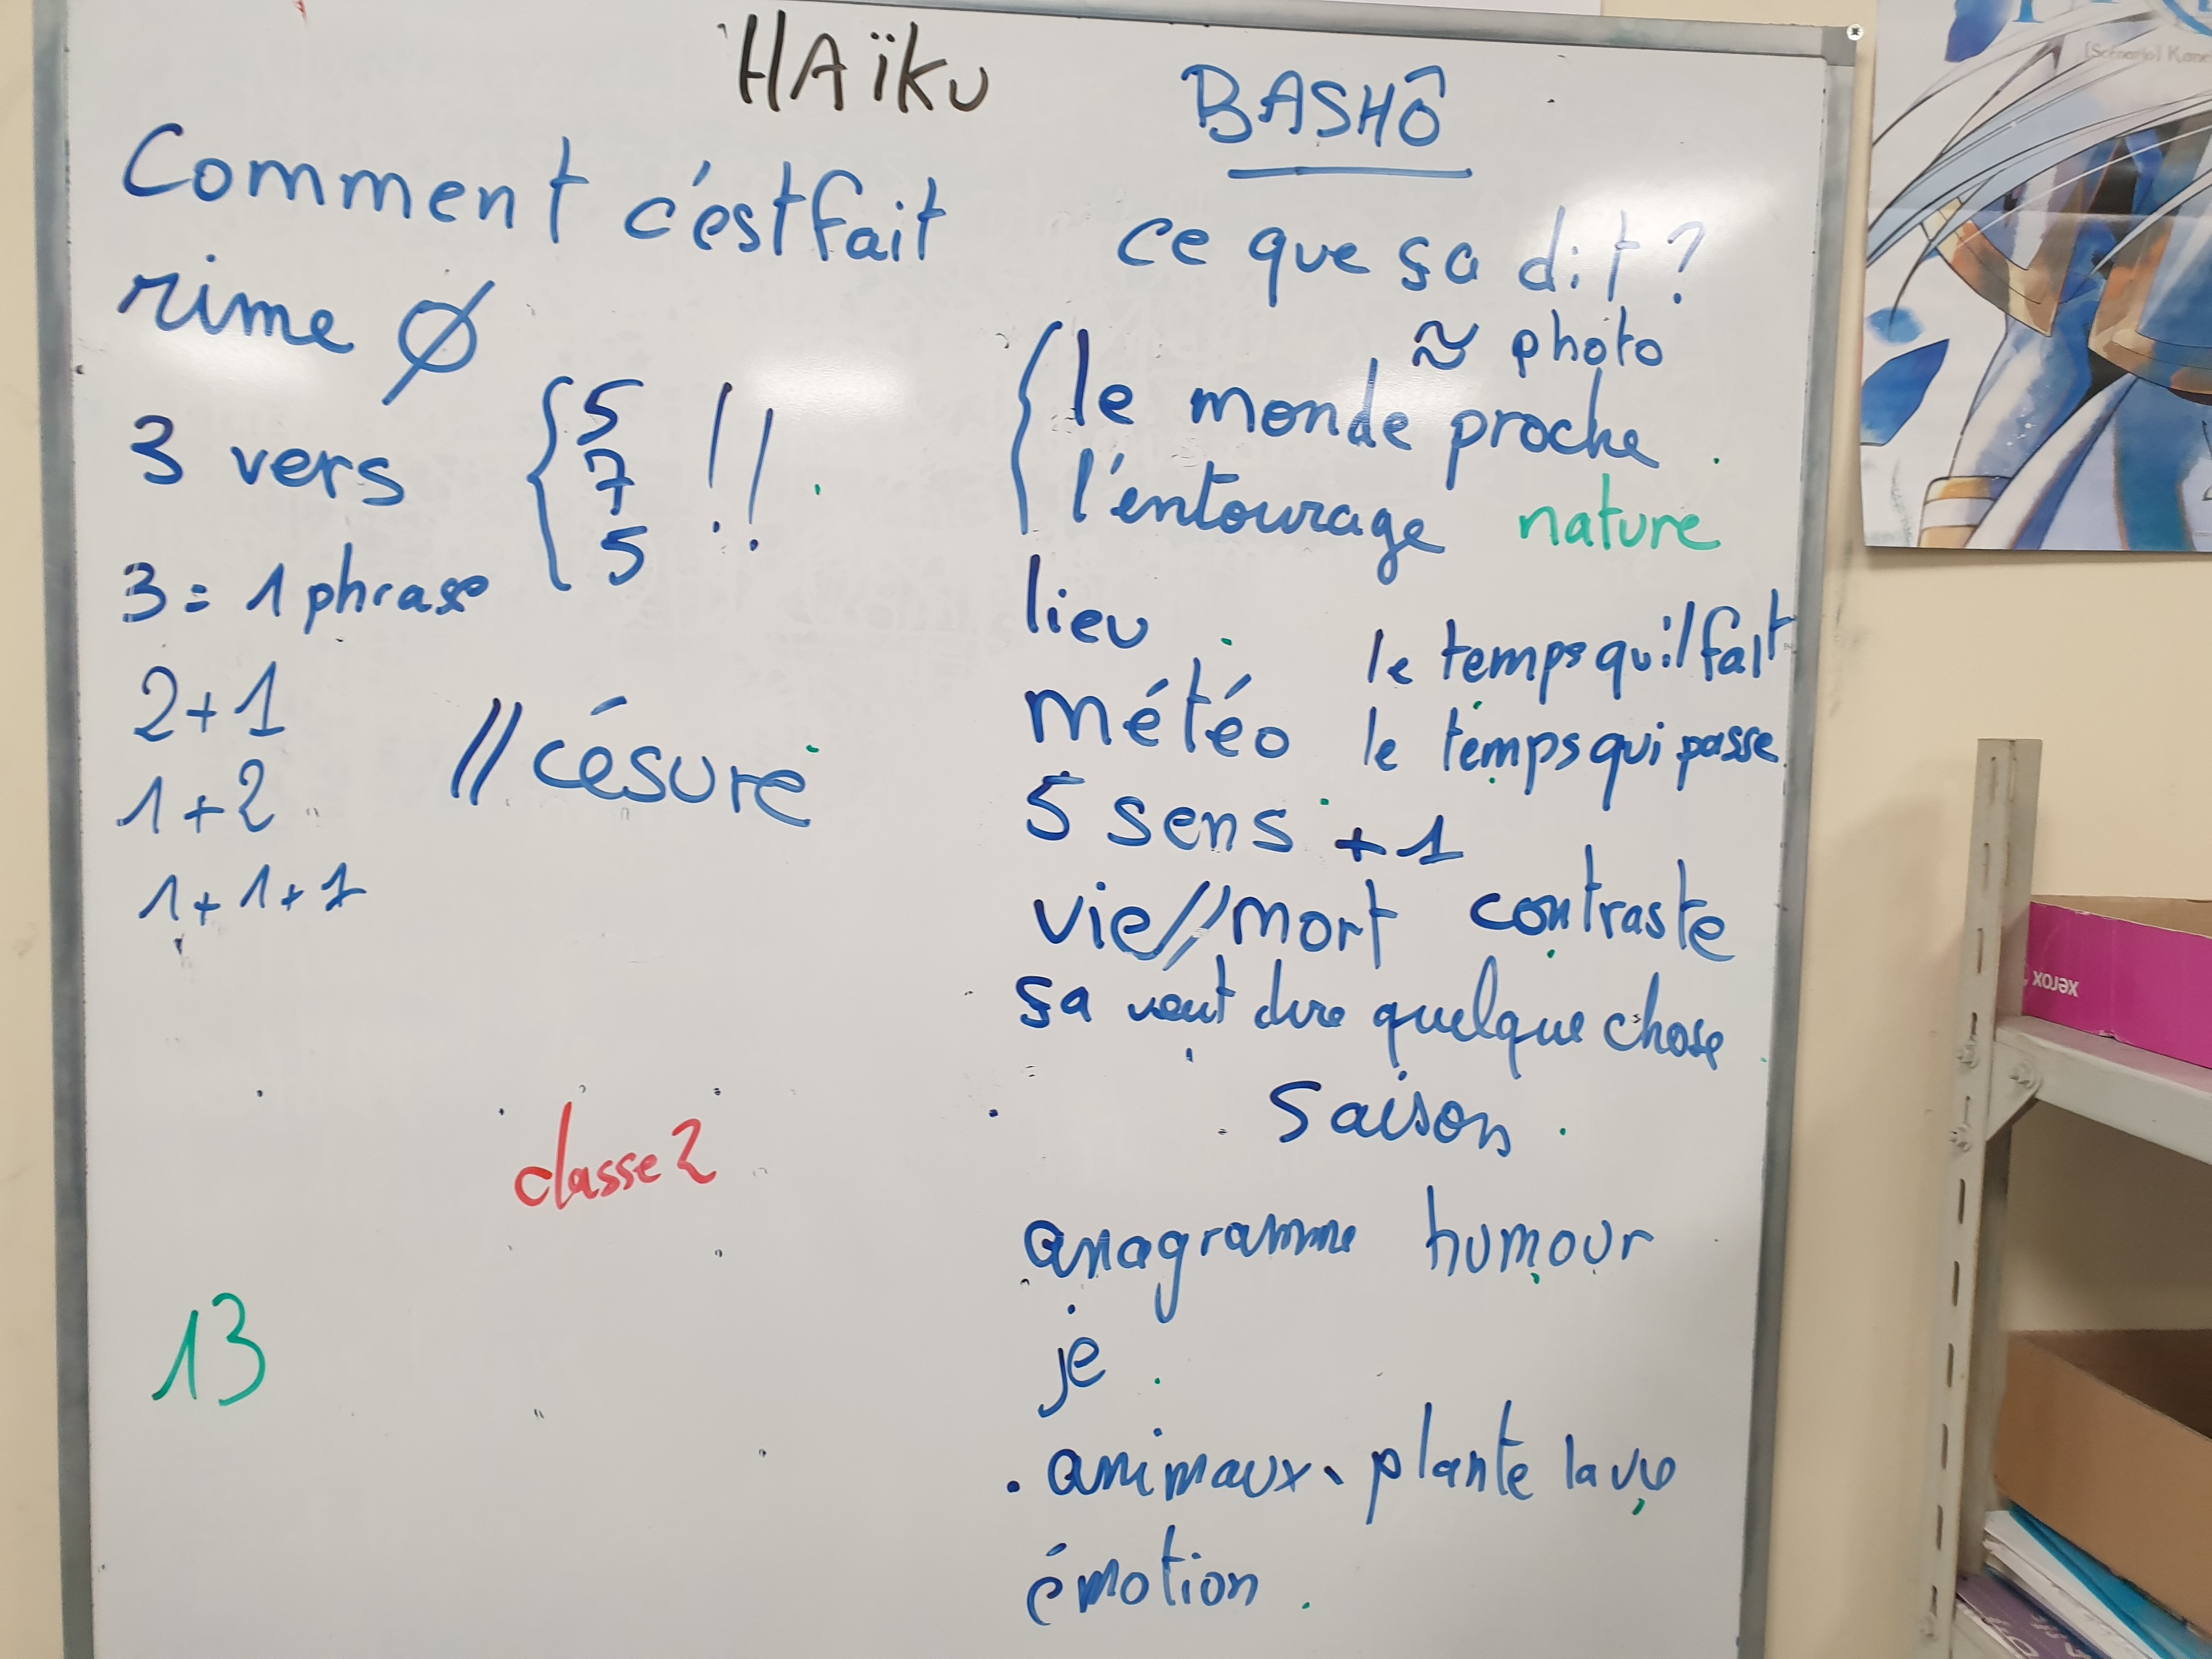 HAÏKU
BASHÔ
Comment c'est fait
rime Ø
3 vers { 5 7 5 !!
3 = 1 phrase
2+1
1+2
1+1+1
// césure
classe 2
13
ce que ça dit ?
≈ photo
le monde proche
l'entourage nature
lieu
le temps qu'il fait
météo le temps qui passe
5 sens +1
vie // mort contraste
ça veut dire quelque chose
saison
anagramme humour
je
. animaux . plante la vie
émotion
[Scénario] Kane
xerox